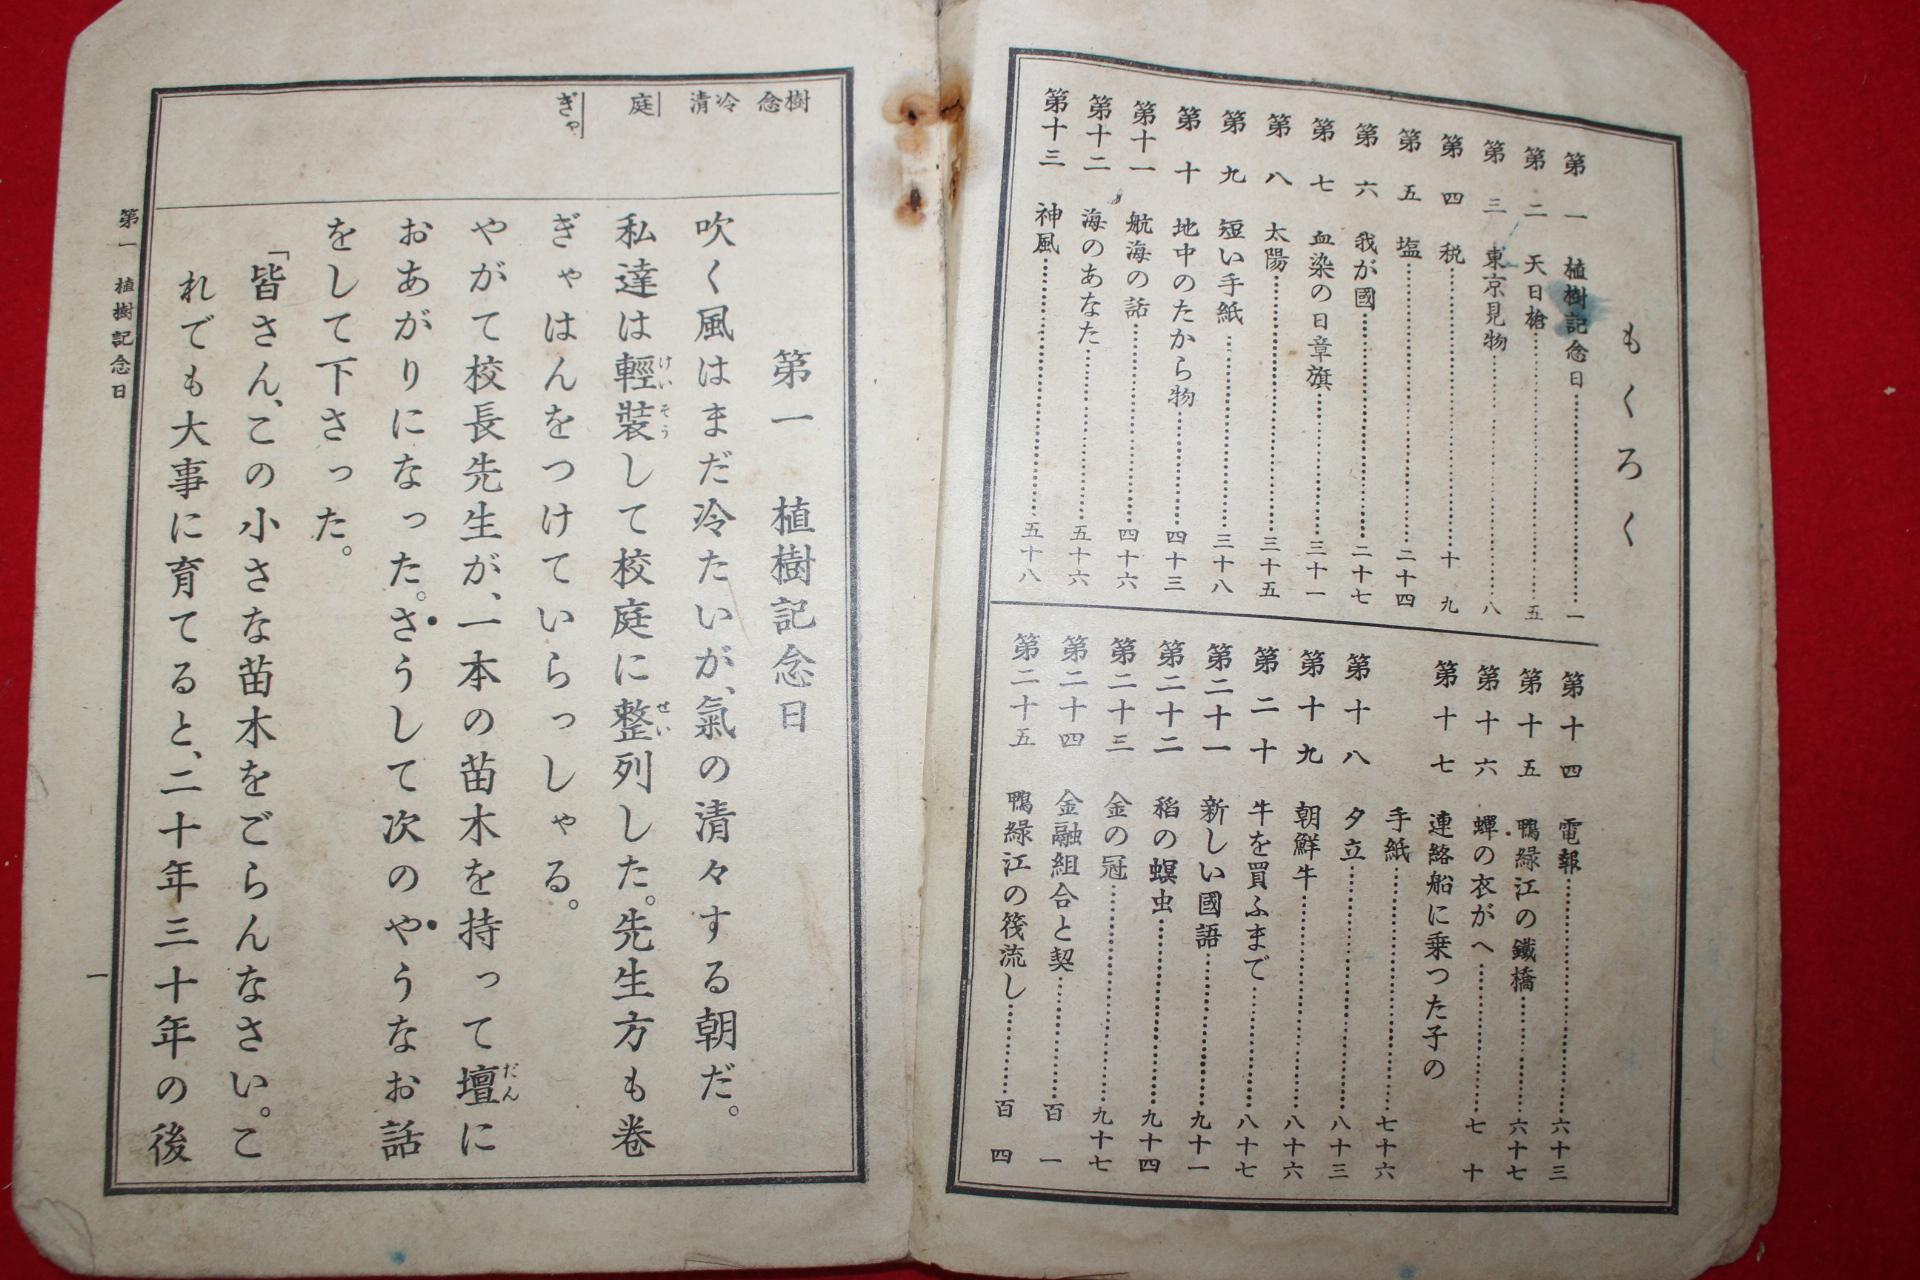 もくろく
第一 植樹記念日…………一
第二 天日槍…………五
第三 東京見物…………八
第四 税…………十九
第五 塩…………二十四
第六 我が國…………二十七
第七 血染の日章旗…………三十一
第八 太陽…………三十五
第九 短い手紙…………三十八
第十 地中のたから物…………四十三
第十一 航海の話…………四十六
第十二 海のあなた…………五十六
第十三 神風…………五十八
第十四 電報…………六十三
第十五 鴨緑江の鐵橋…………六十七
第十六 蟬の衣がへ…………七十
第十七 連絡船に乗つた子の
手紙…………七十六
第十八 夕立…………八十三
第十九 朝鮮牛…………八十六
第二十 牛を買ふまで…………八十七
第二十一 新しい國語…………九十一
第二十二 稻の螟虫…………九十四
第二十三 金の冠…………九十七
第二十四 金融組合と契…………百一
第二十五 鴨緑江の筏流し…………百四
樹
念
冷
清
庭
ぎゃ
第一 植樹記念日
吹く風はまだ冷たいが、氣の清々する朝だ。
私達は輕裝して校庭に整列した。先生方も卷
けいそう せい
ぎゃはんをつけていらっしゃる。
やがて校長先生が、一本の苗木を持って壇に
だん
おあがりになった。さうして次のやうなお話
をして下さった。
「皆さん、この小さな苗木をごらんなさい。こ
れでも大事に育てると、二十年三十年の後
第一 植樹記念日
一